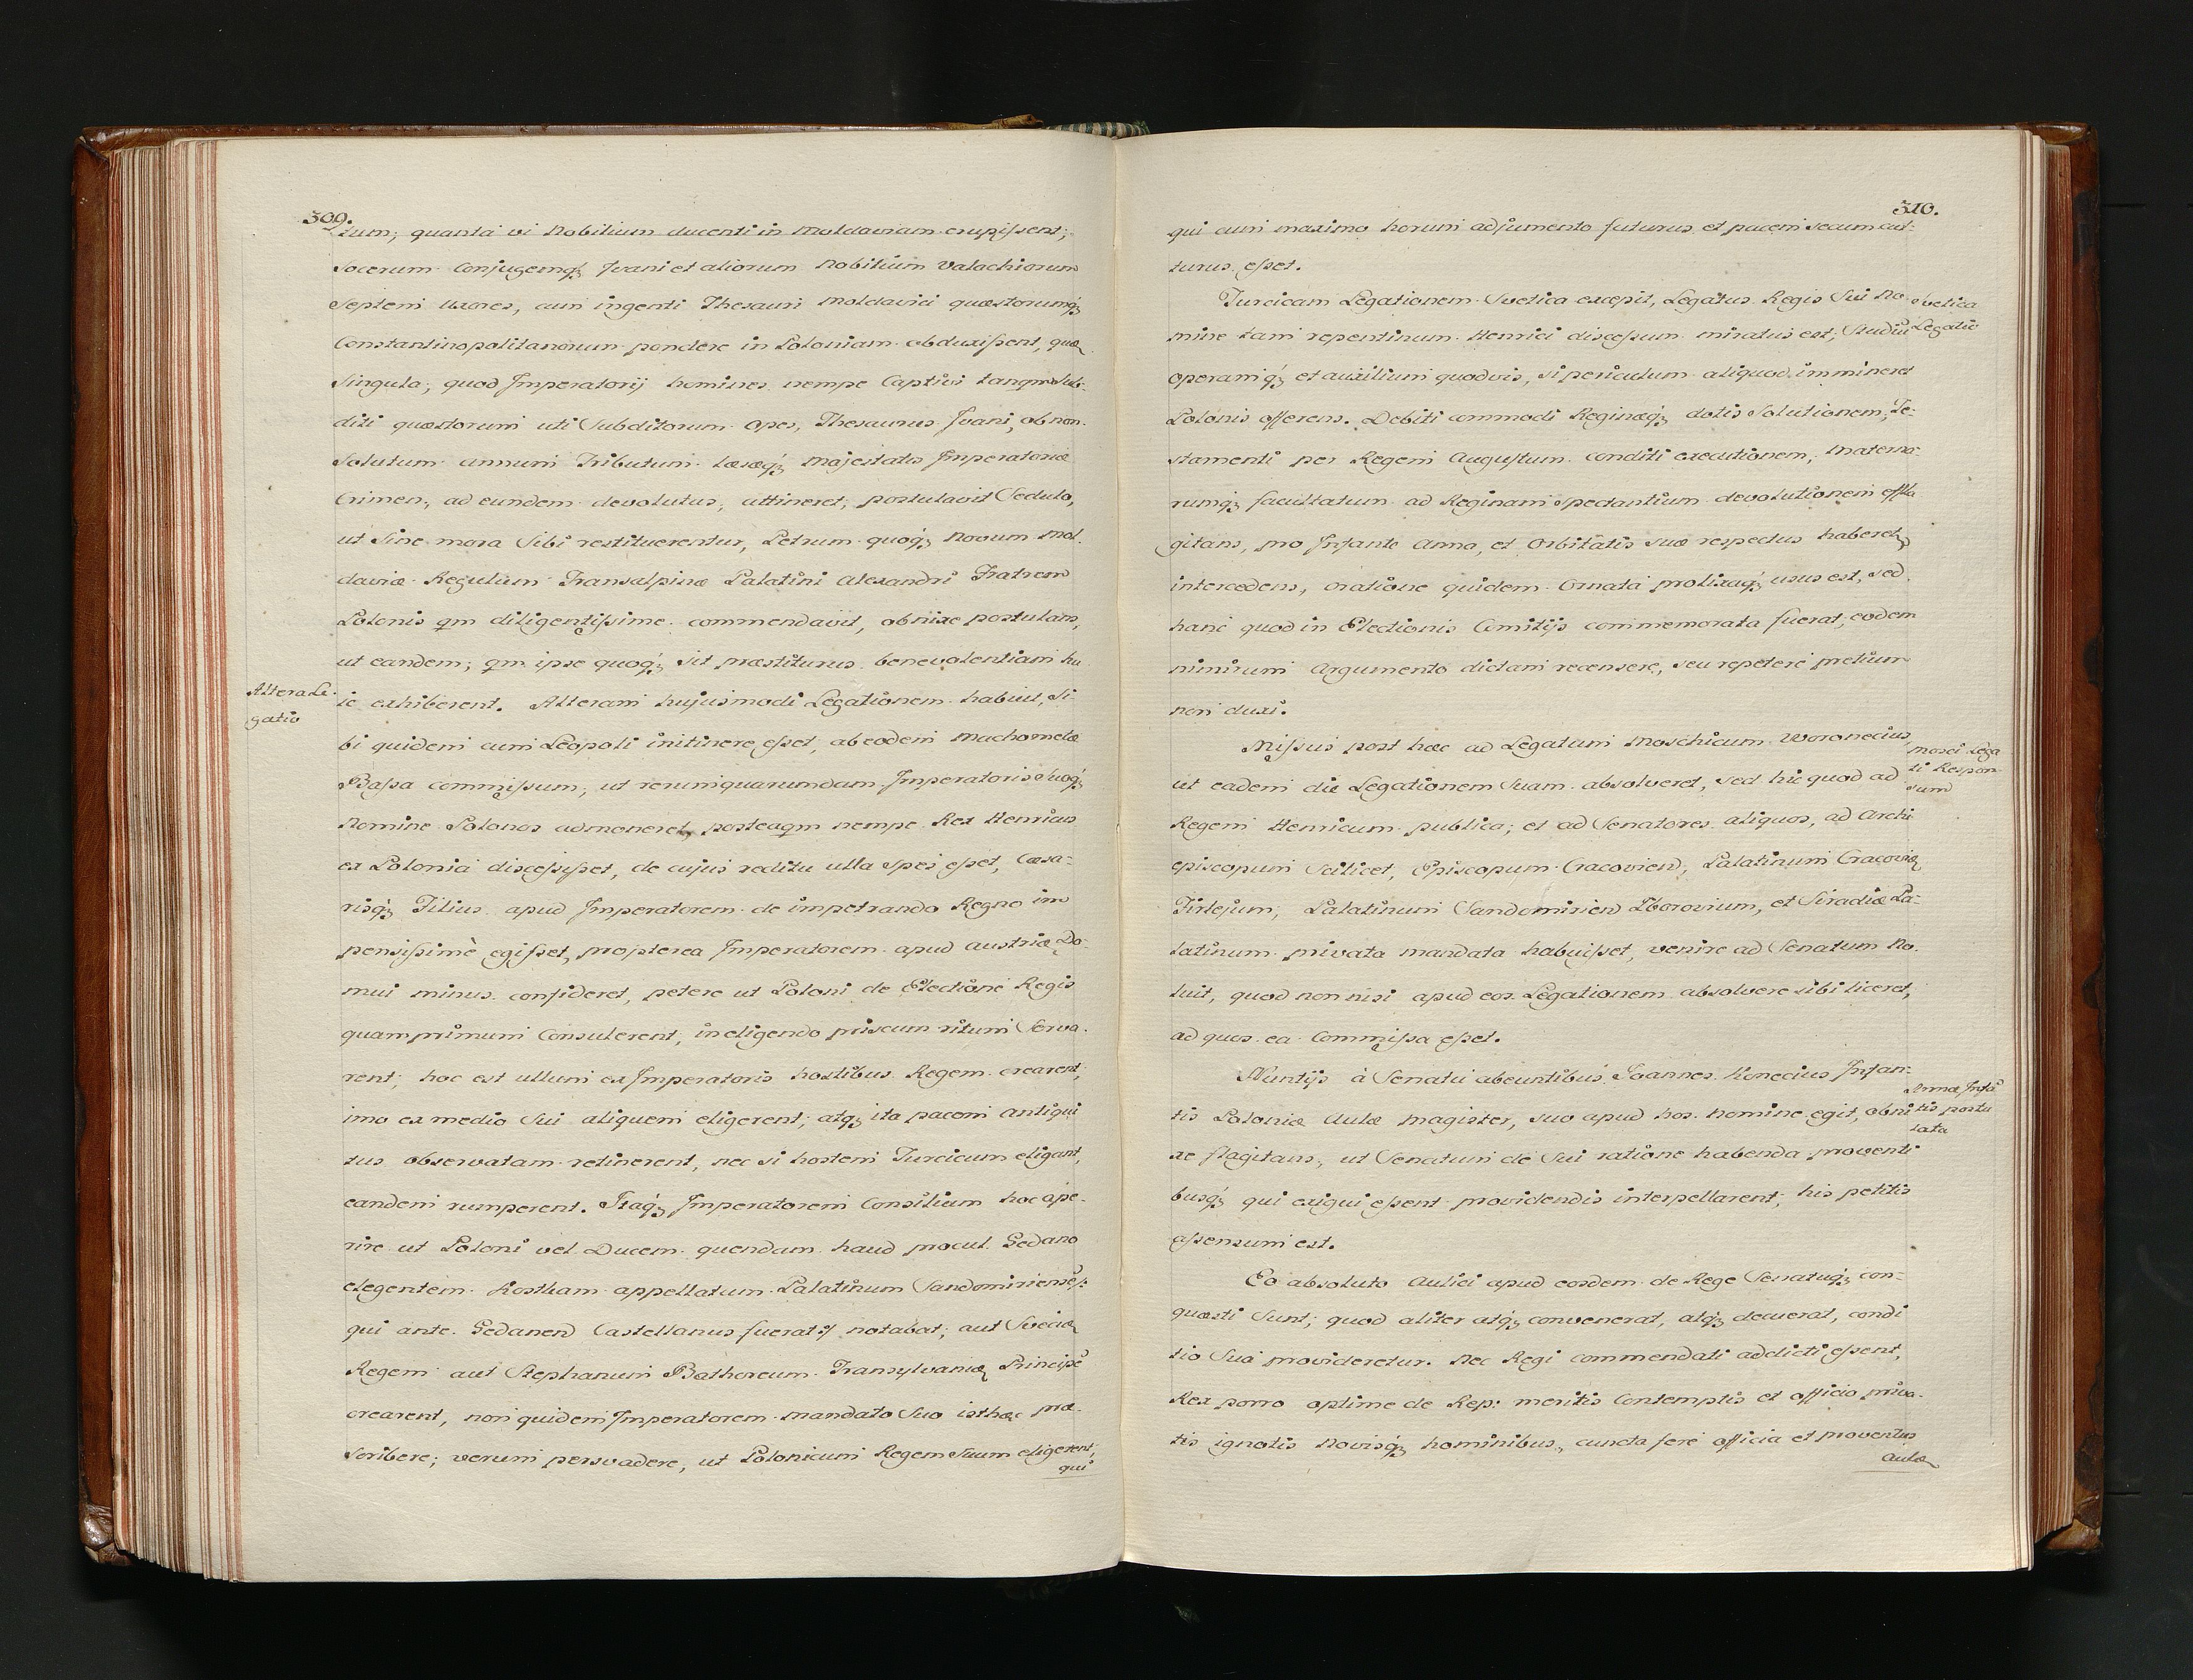 309.
tum; quanta vi Nobilium ducenti in Moldaviam erupissent;
Socerum Conjugemq́ꝫ Jvani et aliorum Nobilium Valachiorum
Septem uxores, cum ingenti Thesauri Moldavici quæstorumq́ꝫ
Constantinopolitanorum pondere in Poloniam abduxissent, quæ
Singula, quod Imperatorij homines nempe Captivi tanqm Sub-
diti quæstorum uti Subditorum opes, Thesaurus Jvani, ob non
Solutum annum Tributum læsæq́ꝫ Majestatis Imperatoriæ
Crimen, ad eundem devolutus, attineret, postulavit Sedulo,
ut Sine mora Sibi restituerentur, Petrum quoq́ꝫ Novum Mol-
daviæ Regulum Transalpinæ Palatini Alexandri Fratrem
Polonis qm diligentissime commendavit, obnixe postulans,
ut eandem; qm ipse quoq́ꝫ sit præstiturus benevolentiam hu
ic exhiberent. Alteram hujusmodi Legationem habuit, Si-
Altera Le-
gatio
bi quidem cum Leopoli in itinere esset, ab eodem Muchometa
Bassa commissum, ut rerum quarumdam Imperatoris Suoq́ꝫ
Nomine Polonos admoneret, posteaqm nempe Rex Henricus
ex Polonia discessisset, de cujus reditu ulla spes esset, Cæsa-
risq́ꝫ Filius apud Imperatorem de impetrando Regno im
pensissimè egisset, propterea Imperatorem apud Austriæ Do-
mui minus confideret, petere ut Poloni de Electione Regis
quamprimum Consulerent, in eligendo priscum ritum Serva-
rent; hoc est ullum ex Imperatoris hostibus Regem crearent;
imo ex medio Sui aliquem eligerent; atqꝫ ita pacem antiqui
tus observatam retinerent, nec si hostem Turcicum eligant,
eandem rumperent. Itaq́ꝫ Imperatorem Consilium hoc ape-
rire ut Poloni vel Ducem quendam haud procul Gedano
elegentem Kostkam appellatum Palatinum Sandomiriens:
qui ante Gedanen Castellanus fuerat notabat; aut Sveciæ
Regem aut Stephanum Bathoreum Transylvaniæ Principē
crearent, non quidem Imperatorem mandato Suo isthæc præ-
Scribere; verum persvadere, ut Polonicum Regem Suum eligerent,
qui
310.
qui cum maximo horum adjumento futurus et pacem secum cul-
turus esset.
Turcicam Legationem Svetica excepit, Legatus Regis Sui No-
Svetica
Legatio
mine tam repentinum Henrici discessum miratus est, Studiū
operamq́ꝫ et auxilium quodvis, si periculum aliquod immineret
Polonis offerens. Debiti commodi Reginæq́ꝫ dotis Solutionem, Te-
stamenti per Regem Augustum conditi executionem, Materna-
rumqꝫ facultatum ad Reginam spectantium devolutionem effla
gitans, pro Infante Anna, et Orbitatis suæ respectus haberetꝫ
intercedens, oratione quidem Ornata prolixaq́ꝫ usus est, sed
hanc quod in Electionis Comitijs commemorata fuerat, eodem
nimirum Argumento dictam recensere, seu repetere pretium
non duxi.
Missus post hæc ad Legatum Moschicum Woronecius
Mosci Lega
ti Respon-
sum
ut eadem die Legationem Suam absolveret, sed hic quod ad
Regem Henricum publica; et ad Senatores aliquos, ad Archi
episcopum Scilicet, Episcopum Cracovien, Palatinum Cracoviæ
Firlejum, Palatinum Sandomirien Zborovium, et Siradiæ Pa-
latinum privata mandata habuisset, venire ad Senatum No-
luit, quod non nisi apud eos Legationem absolvere sibi liceret,
ad quos ea Commissa esset.
Nuntijs à Senatu abeuntibus Joannes Konecius Infan-
Annæ Infā
tis postu
lata
tis Poloniæ Aulæ Magister, suo apud hos nomine egit, obni
xe flagitans, ut Senatum de Sui ratione habenda proventi
busq́ꝫ qui exigui essent providendis interpellarent; his petitis
assensum est.
Eo absoluto Aulici apud eosdem de Rege Senatuq́ꝫ con-
quæsti Sunt; quod aliter atq́ꝫ convenerat, atq́ꝫ decuerat, condi
tio Sua provideretur. Nec Regi commendati addicti essent,
Rex porro optime de Rep: meritis Contemptis et officio priva-
tis ignotis Novisq́ꝫ hominibus, cuncta fere officia et proventus
aulæ